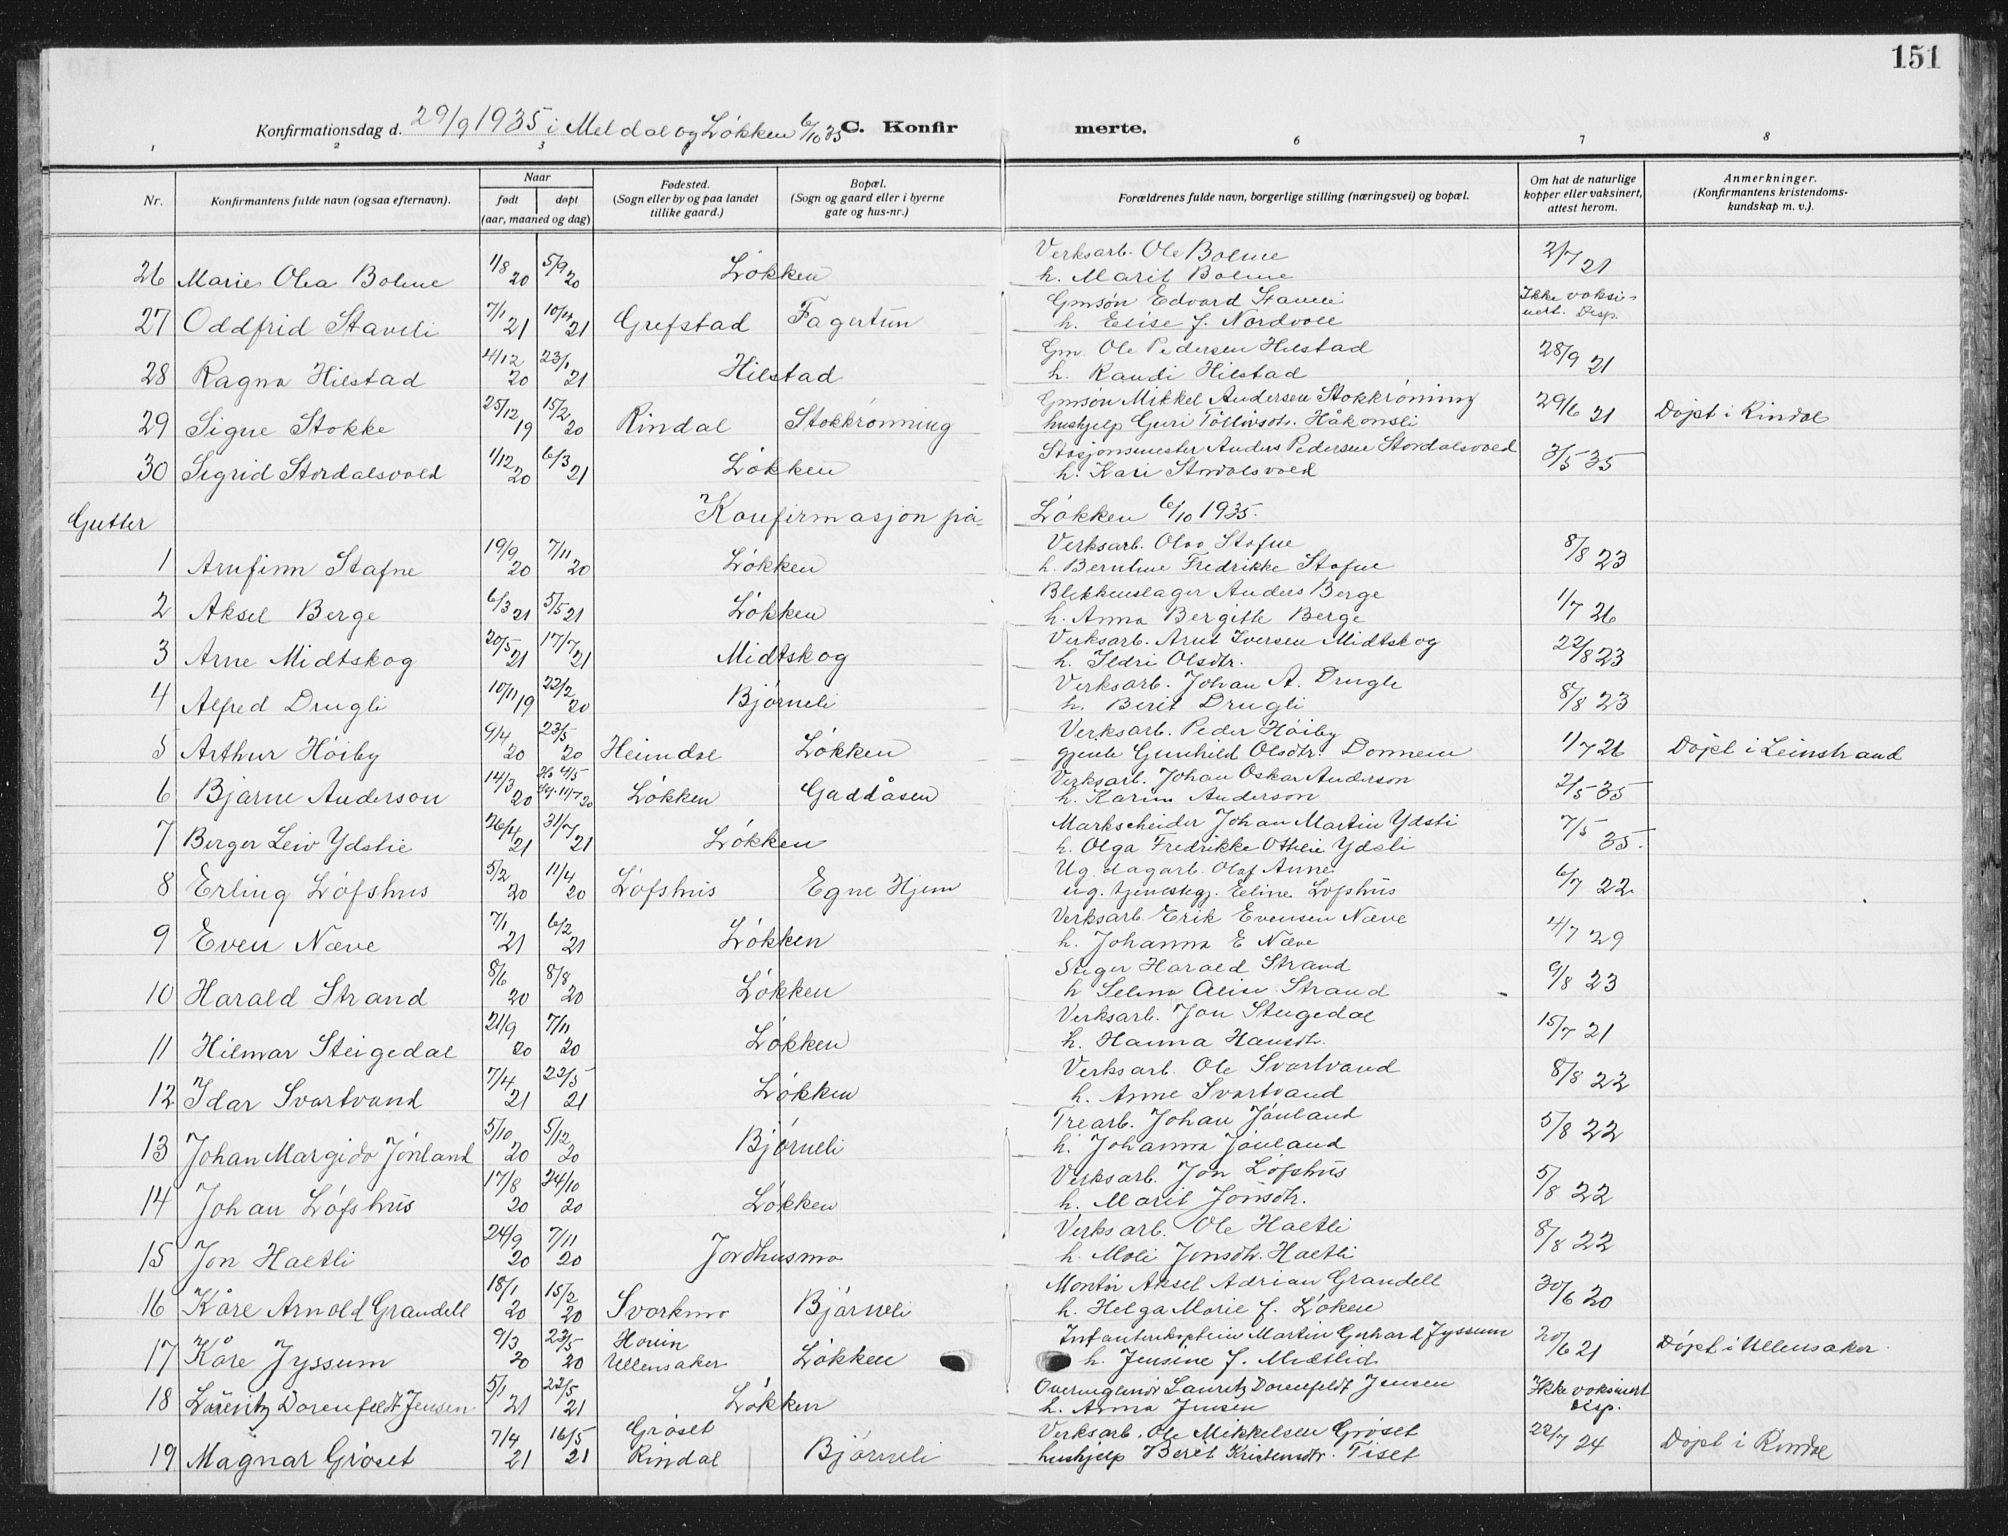 151
Konfirmationsdag d. 29/9 1935 i Meldal og Løkken 6/10 35 C. Konfirmerte.
1 2 3 6 7 8
Nr. Konfirmantens fulde navn (ogsaa efternavn). Naar født døpt (aar, maaned og dag) Fødested. (Sogn eller by og paa landet tillike gaard.) Bopæl. (Sogn og gaard eller i byerne gate og hus-nr.) Forældrenes fulde navn, borgerlige stilling (næringsvei) og bopæl. Om hat de naturlige kopper eller vaksinert, attest herom. Anmerkninger. (Konfirmantens kristendomskundskap m. v.).
26 Marie Olea Bolme 1/8 20 5/9 20 Løkken Verksarb. Ole Bolme 2/7 21
h. Marit Bolme
27 Oddfrid Staveli 7/1 21 10/4 21 Grefstad Fagertun Gmsøn Edvard Staveli Ikke voksinert. Disp.
h. Elise f. Nordvoll
28 Ragna Hilstad 4/12 20 23/1 21 Hilstad Gm. Ole Pedersen Hilstad 28/9 21
h. Randi Hilstad
29 Signe Stokke 25/12 19 15/2 20 Rindal Stokkrønning Gmsøn Mikkel Andersen Stokkrønning 29/6 21 Døpt i Rindal
hushjelp Guri Tollivsdtr. Håkonsli
30 Sigrid Stordalsvold 1/12 20 6/3 21 Løkken Stasjonsmester Anders Pedersen Stordalsvold 3/5 35
h. Kari Stordalsvold
Gutter Konfirmasjon på Løkken 6/10 1935.
1 Arnfinn Stafne 19/9 20 7/11 20 Løkken Verksarb. Olav Stafne 8/8 23
h. Berntine Fredrikke Stafne
2 Aksel Berge 6/3 21 5/5 21 Løkken Blekkenslager Anders Berge 1/7 26
h. Anna Bergitte Berge
3 Arne Midtskog 20/5 21 17/7 21 Midtskog Verksarb. Arnt Iversen Midtskog 22/8 23
h. Ildri Olsdtr.
4 Alfred Drugli 10/11 19 22/2 20 Bjørneli Verksarb. Johan A. Drugli 8/8 23
h. Berit Drugli
5 Arthur Høiby 9/4 20 23/5 20 Heimdal Løkken Verksarb. Peder Høiby 1/7 26 Døpt i Leinstrand
gjente Gunhild Olsdtr. Donnem
6 Bjarne Anderson 14/3 20 4/5 11/7 20 Løkken Gaddåsen Verksarb. Johan Oskar Anderson 2/5 35
h. Karin Anderson
7 Berger Leiv Ydstie 26/4 21 31/7 21 Løkken Markscheider Johan Martin Ydsti 7/5 35.
h. Olga Fredrikke Ottilie Ydsti
8 Erling Løfshus 5/2 20 11/4 20 Løfshus Egne Hjem Ug. dagarb. Olaf Anne 6/7 22
ug. tjenestegj. Eline Lofshus
9 Even Næve 7/1 21 6/2 21 Løkken Verksarb. Erik Evensen Næve 4/7 29
h. Johanna E Næve
10 Harald Strand 8/6 20 8/8 20 Løkken Stiger Harald Strand 9/8 23
h Selma Alise Strand
11 Hilmar Steigedal 21/9 20 7/11 20 Løkken Verksarb. Jon Steigedal 15/7 21
h. Hanna Hansdtr.
12 Idar Svartvand 7/4 21 22/5 21 Løkken Verksarb. Ole Svartvand 8/8 22
h. Anne Svartvand
13 Johan Margido Jønland 5/10 20 5/12 20 Bjørneli Trearb. Johan Jønland 5/8 22
h. Johanna Jønland
14 Johan Løfshus 17/8 20 24/10 20 Løkken Verksarb. Jon Løfshus 5/8 22
h. Marit Jonsdtr.
15 Jon Haltli 24/9 20 7/11 20 Jordhusmo Verksarb. Ole Haltli 8/8 22
h. Mali Jonsdtr. Haltli
16 Kåre Arnold Grandell 18/1 20 15/2 20 Svorkmo Bjørneli Montør Aksel Adrian Grandell 30/6 20
h. Helga Marie f. Løken
17 Kåre Jyssum 9/3 20 23/5 20 Hovin Ullensaker Løkken Infanterikaptein Martin Gerhard Jyssum 20/6 21 Døpt i Ullensaker
h. Jensine f. Midtlid
18 Lauritz Dorenfeldt Jensen 5/1 21 22/5 21 Løkken Overingeniør Lauritz Dorenfeldt Jensen Ikke voksinert Disp.
h. Anna Jensen
19 Magnar Grøset 7/4 21 16/5 21 Grøset Rindal Bjørneli Verksarb. Ole Mikkelsen Grøset 22/7 24 Døpt i Rindal
hushjelp Berit Kristensdtr. Tiset